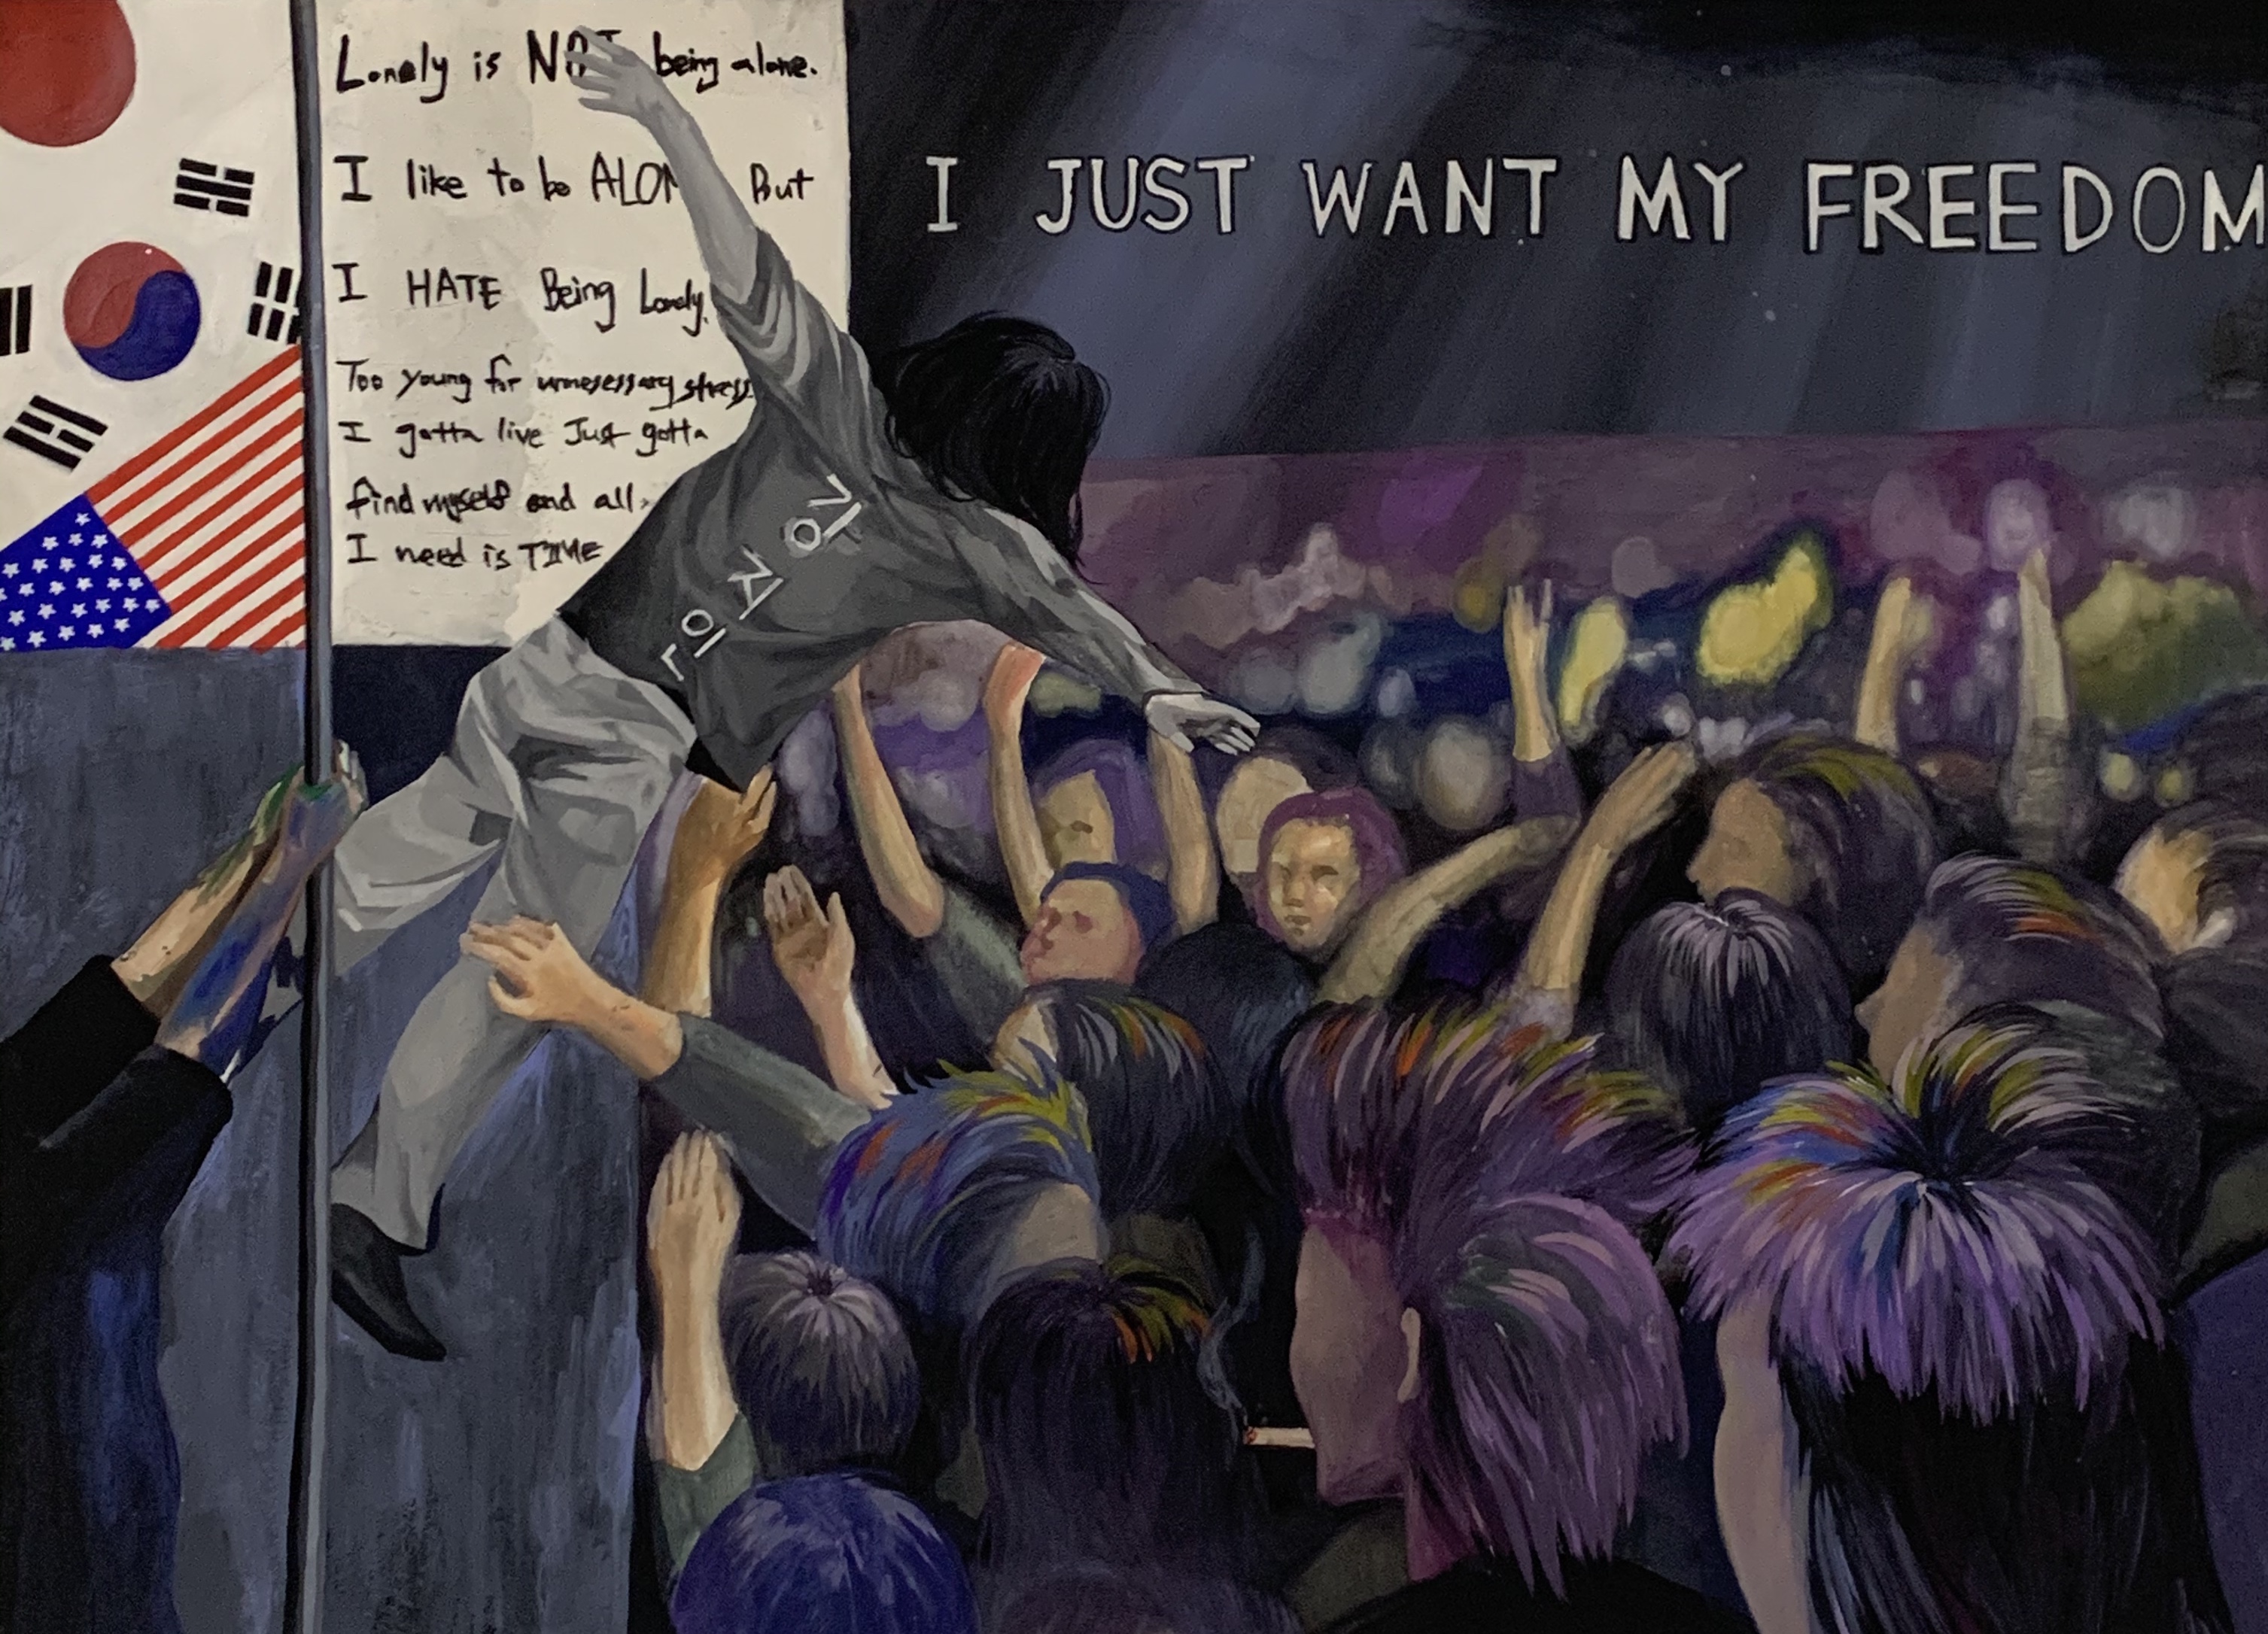 Lonely is NOT being alone.
I like to be ALON But
I HATE Being Lonely.
Too young for unnesessary stress
I gotta live Just gotta
find myself and all
I need is TIME
I JUST WANT MY FREEDOM